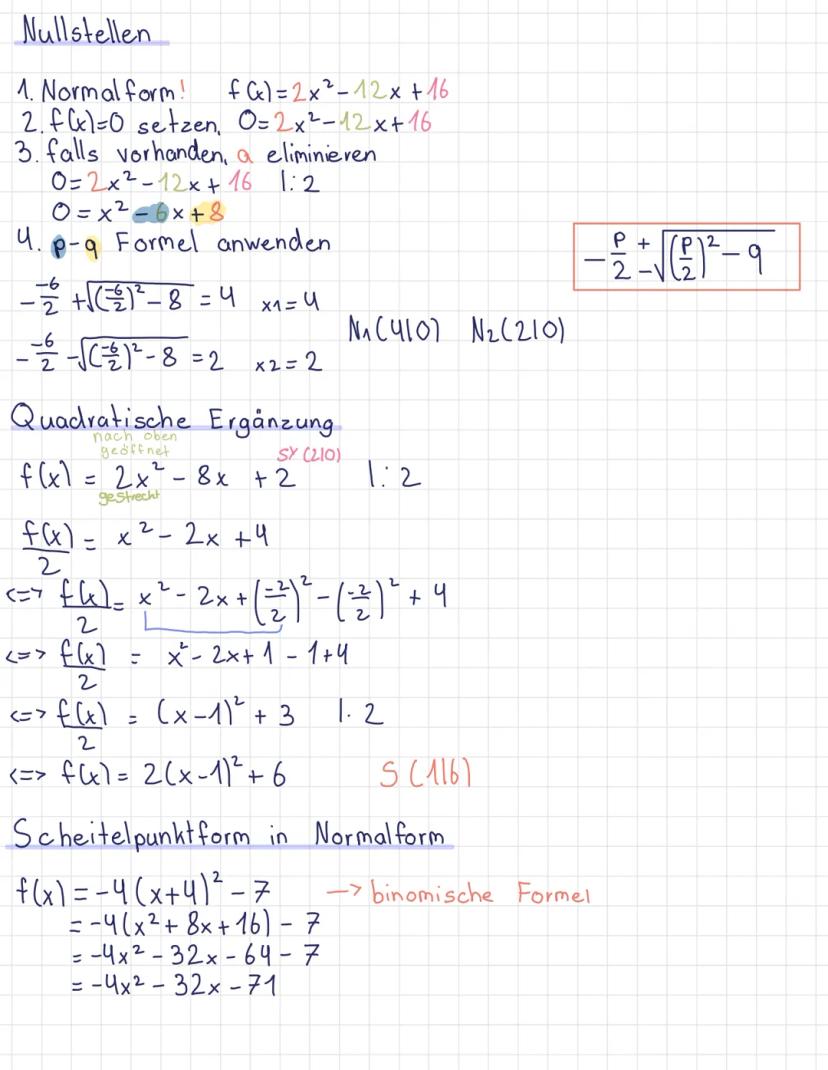 Nullstellen
1. Normalform! f(x)=2x²-12x+16
2. f(x)=0 setzen, 0=2x²-12x+16
3. falls vorhanden, a eliminieren
0=2x²-12x+16 |:2
0=x²-6x+8
4. p-q Formel anwenden
-p/2 ± √((p/2)²-q)
-(-6/2) + √((-6/2)²-8) = 4 x1=4
N₁(4|0) N₂(2|0)
-(-6/2) - √((-6/2)²-8) = 2 x2=2
Quadratische Ergänzung
nach oben
geöffnet
SY(2|0)
f(x) = 2x² - 8x + 2 |:2
gestreckt
f(x)/2 = x² - 2x + 4
<=> f(x)/2 = x² - 2x + (-2/2)² - (-2/2)² + 4
<=> f(x)/2 = x² - 2x + 1 - 1 + 4
<=> f(x)/2 = (x-1)² + 3 |· 2
<=> f(x) = 2(x-1)² + 6 S(1|6)
Scheitelpunktform in Normalform
f(x) = -4(x+4)² - 7 -> binomische Formel
= -4(x² + 8x + 16) - 7
= -4x² - 32x - 64 - 7
= -4x² - 32x - 71